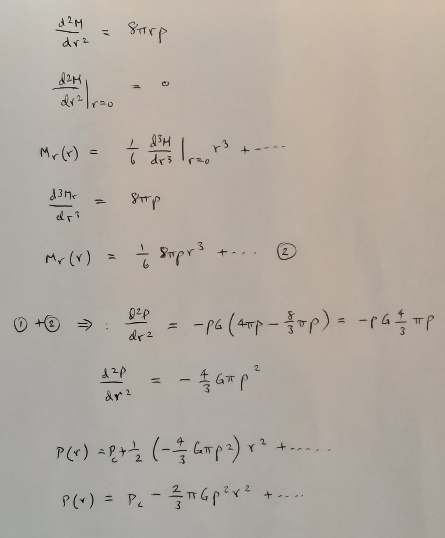 d²M/dr² = 8πrρ
d²M/dr²|r=0 = 0
Mr(r) = 1/6 d³M/dr³|r=0 r³ + -----
d³Mr/dr³ = 8πρ
Mr(r) = 1/6 8πρr³ + ... ②
① + ② ⇒ : d²P/dr² = -ρG (4πρ - 8/3 πρ) = -ρG 4/3 πρ
d²P/dr² = - 4/3 Gπρ²
P(r) = Pc + 1/2 (-4/3 Gπρ²) r² + .....
P(r) = Pc - 2/3 πGρ²r² + ....